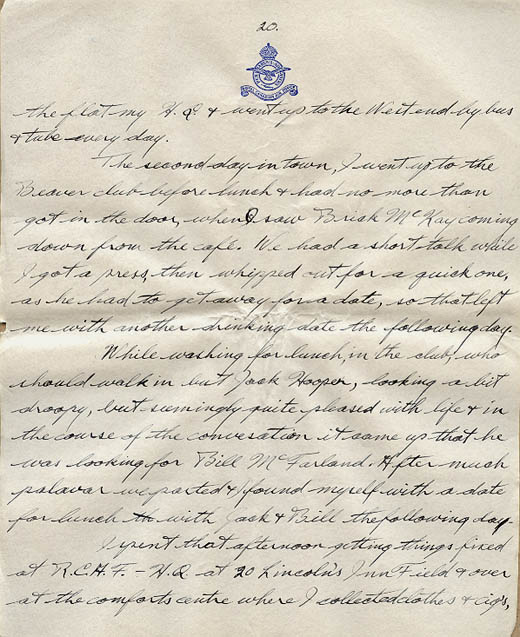 20.
the flat my H.Q. & went up to the West end by bus
& tube every day.
The second day in town, I went up to the
Beaver club before lunch & had no more than
got in the door, when I saw Brick McKay coming
down from the café. We had a short talk while
I got a press, then whipped out for a quick one,
as he had to get away for a date, so that left
me with another drinking date the following day.
While washing for lunch, in the club, who
should walk in but Jack Hooper, looking a bit
droopy, but seemingly quite pleased with life & in
the course of the convesation it came up that he
was looking for Bill McFarland. After much
palavar we parted & I found myself with a date
for lunch th with Jack & Bill the following day.
I spent that afternoon getting things fixed
at R.C.A.F. - H.Q. at 20 Lincoln's Inn Field & over
at the comforts centre where I collected clothes & cig's,